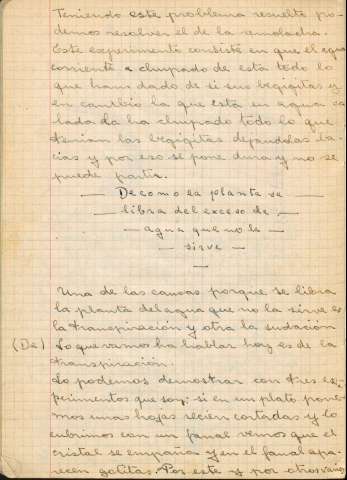 Teniendo este problema resuelto po-
demos resolver el de la remolacha.
Este experimento consiste en que el agua
corriente a chupado de esta todo lo
que ha dado de si sus begigitas y
en cambio la que esta en agua sa
lada la ha chupado todo lo que
tenian las begigitas dejandolas ba-
cias y por eso se pone dura y no se
puede partir.
— De como la planta se
— libra del exceso de —
— agua que no le —
— sirve —
—
Una de las causas porque se libra
la planta del agua que no la sirve es
la transpiración y otra la sudación
(De) Lo que vamos ha hablar hoy es de la
transpiración.
Lo podemos demostrar con tres es,
perimentos que son: si en un plato pone-
mos unas hojas recien cortadas y lo
cubrimos con un fanal vemos que el
cristal se empaña y en el fanal apa-
recen gotitas. Por este y por otros varios